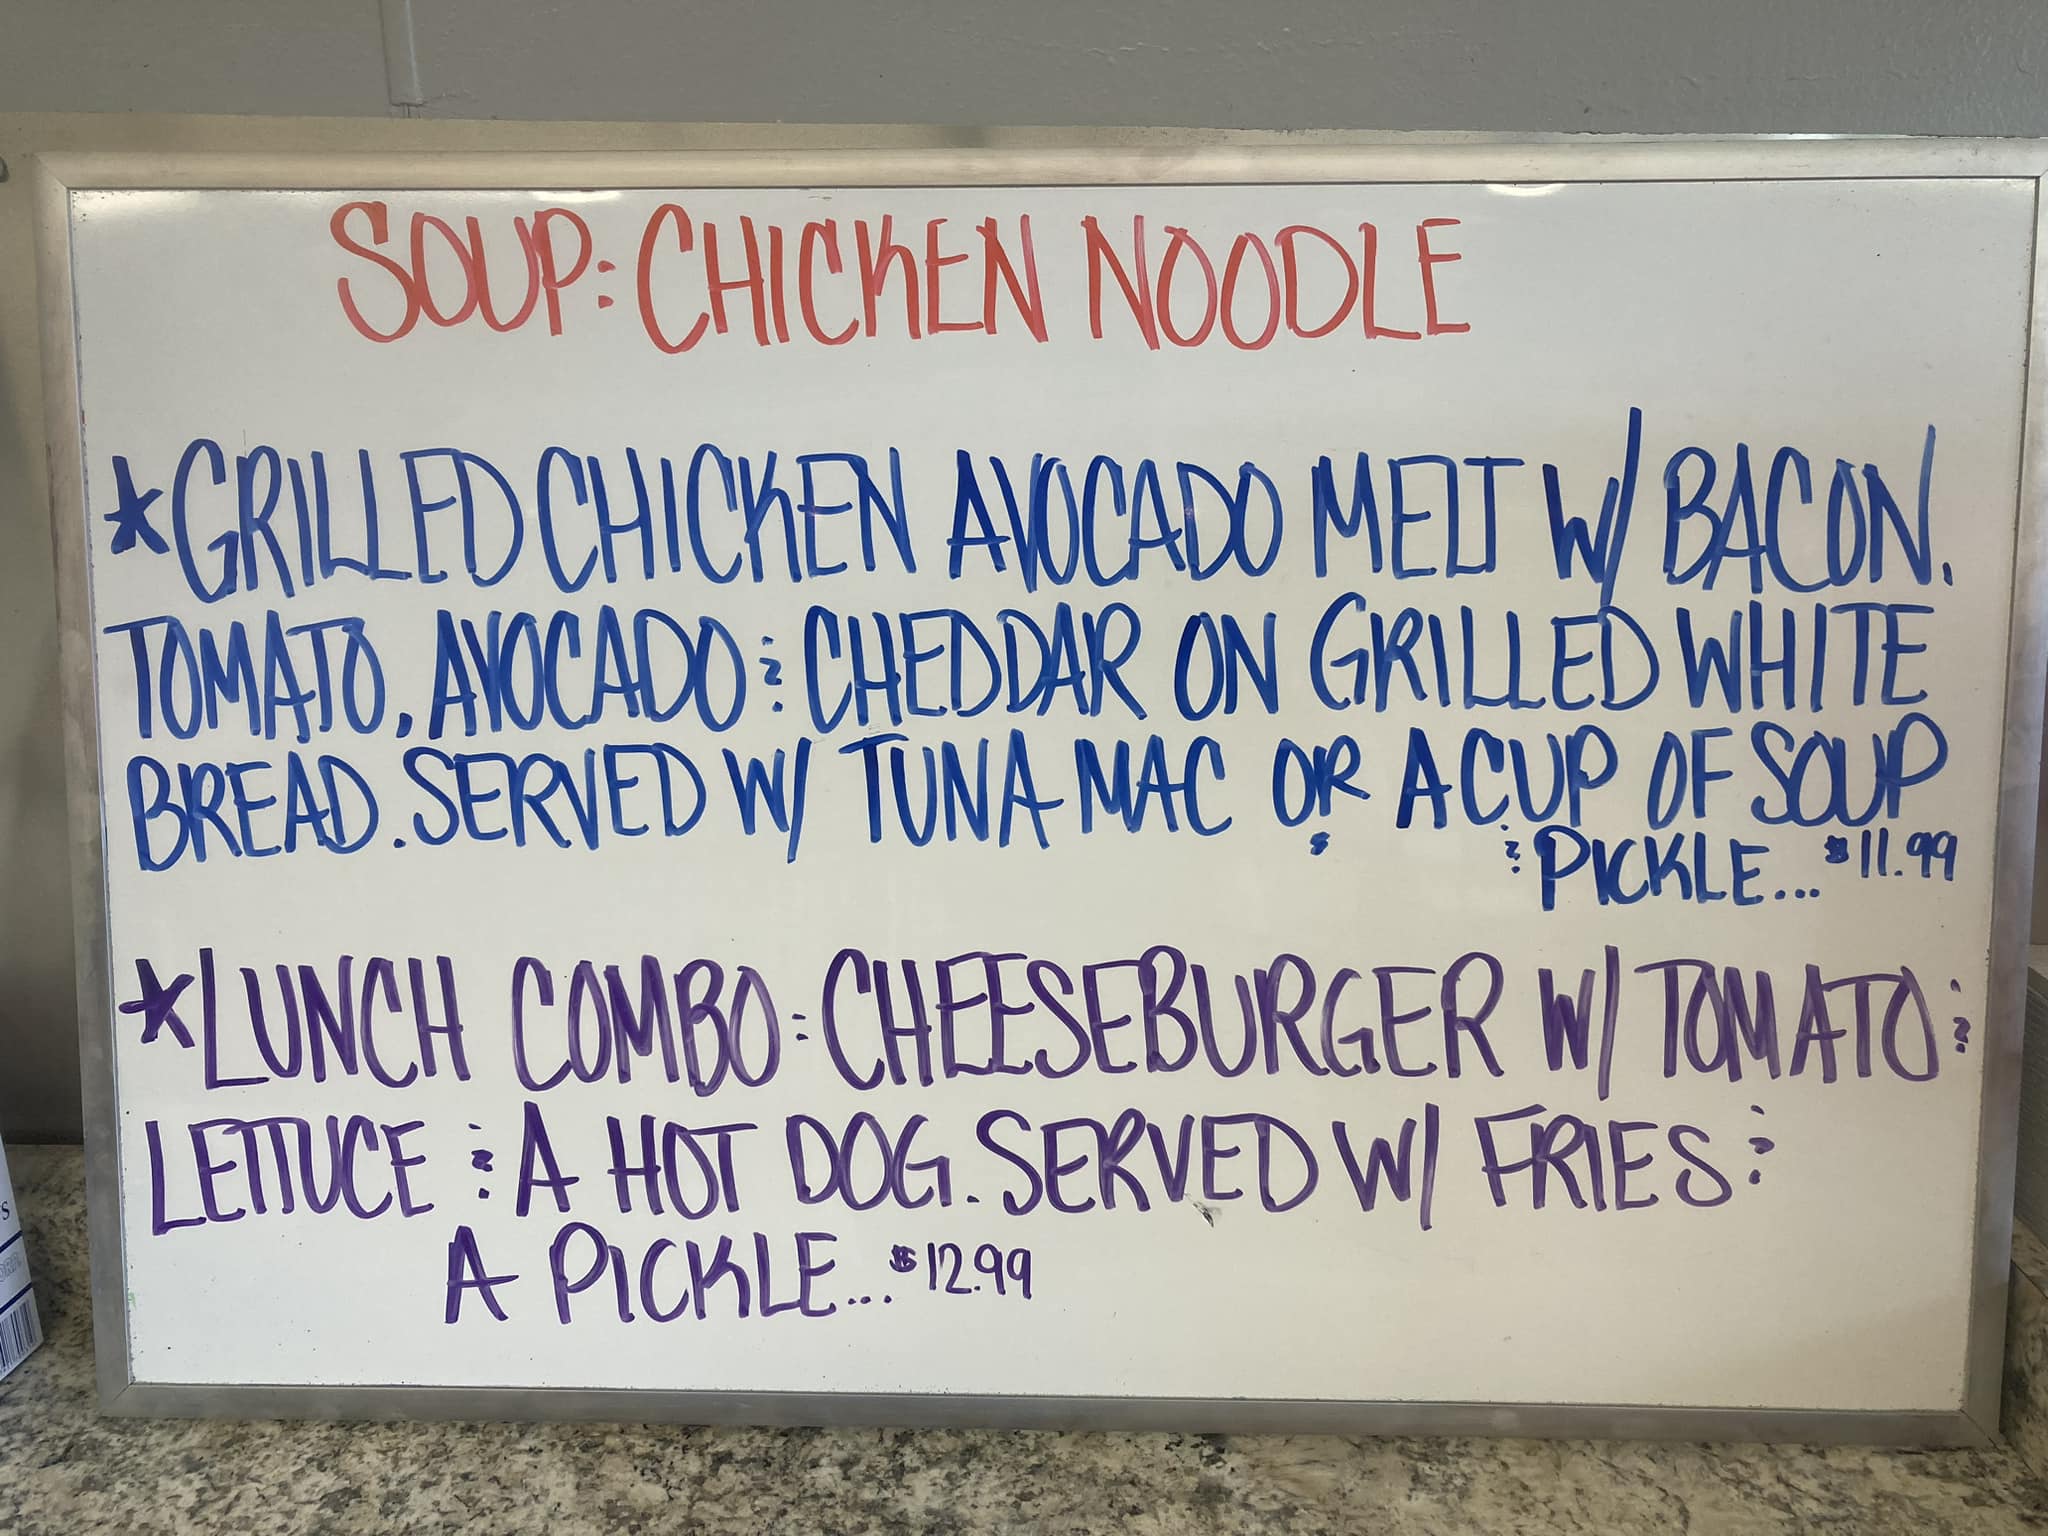 SOUP: CHICKEN NOODLE
*GRILLED CHICKEN AVOCADO MELT W/ BACON,
TOMATO, AVOCADO & CHEDDAR ON GRILLED WHITE
BREAD. SERVED W/ TUNA MAC OR A CUP OF SOUP
& PICKLE... $11.99
*LUNCH COMBO: CHEESEBURGER W/ TOMATO &
LETTUCE & A HOT DOG. SERVED W/ FRIES &
A PICKLE... $12.99